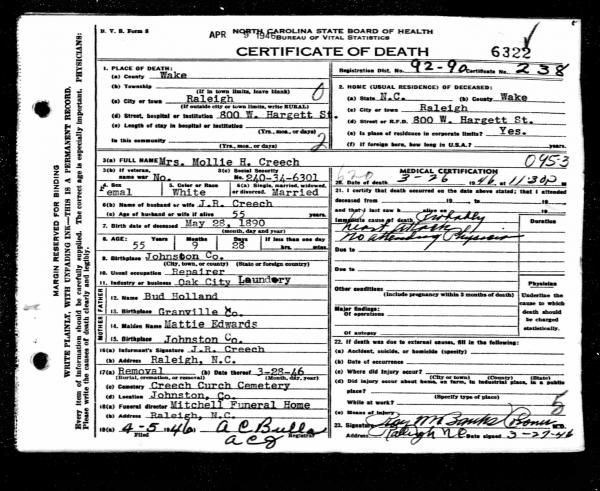 N. V. S. Form 8
NORTH CAROLINA STATE BOARD OF HEALTH
APR 9 1946 BUREAU OF VITAL STATISTICS
CERTIFICATE OF DEATH
6322
Registration Dist. No. 92-90 Certificate No. 238
1. PLACE OF DEATH:
(a) County Wake
(b) Township
(If in town limits, leave blank)
(c) City or town Raleigh
(If outside city or town limits, write RURAL)
(d) Street, hospital or institution 800 W. Hargett St.
(e) Length of stay in hospital or institution
(Yrs., mos., or days)
In this community
(Yrs., mos. or days)
0
2
2. HOME (USUAL RESIDENCE) OF DECEASED:
(a) State N.C. (b) County Wake
(c) City or town Raleigh
(d) Street or R.F.D. 800 W. Hargett St.
(e) Is place of residence in corporate limits? Yes.
(f) If foreign born, how long in U.S.A. years.
3(a) FULL NAME Mrs. Mollie H. Creech
095-3
3(b) If veteran, name war No.
3(c) Social Security No. 240-34-6301
4. Sex Femal
5. Color or Race White
6(a) Single, married, widowed, or divorced. Married
6(b) Name of husband or wife J.R. Creech
6(c) Age of husband or wife if alive 55 years.
7. Birth date of deceased May 28, 1890
(month, day and year)
8. AGE: Years 55 Months 9 Days 28 If less than one day hrs. min.
9. Birthplace Johnston Co.
(City, town, or county) (State or foreign country)
10. Usual occupation Repairer
11. Industry or business Oak City Laundery
FATHER
12. Name Bud Holland
13. Birthplace Granville Co.
MOTHER
14. Maiden Name Mattie Edwards
15. Birthplace Johnston Co.
16(a) Informant's Signature J.R. Creech
(b) Address Raleigh, N.C.
17(a) Removal (b) Date thereof 3-28-46
(Burial, cremation, or removal) (Month, day, year)
(c) Cemetery Creech Curch Cemetery
(d) Location Johnston, Co.
18(a) Funeral director Mitchell Funeral Home
(b) Address Raleigh, N.C.
19(a) 4-5 1946 A C Bulla
Filed Registrar
MEDICAL CERTIFICATION
20. Date of death 3-26 1946 at 11:30P M
21. I certify that death occurred on the date above stated; that I attended
deceased from 19 to 19
and that I last saw h alive on 19
Immediate cause of death Probably
Heart attack
No attending Physician
Due to
Due to
Other conditions
(Include pregnancy within 3 months of death)
Major findings:
Of operations
Of autopsy
Physician
Underline the cause to which death should be charged statistically.
22. If death was due to external causes, fill in the following:
(a) Accident, suicide, or homicide (specify)
(b) Date of occurrence
(c) Where did injury occur?
(City or town) (County) (State)
(d) Did injury occur about home, on farm, in industrial place, in a public place?
(Specify type of place)
While at work?
(e) Means of injury
5
23. Signature Banks Coroner M.D.
Address Raleigh NC Date signed 3-27-46
MARGIN RESERVED FOR BINDING
WRITE PLAINLY, WITH UNFADING INK—THIS IS A PERMANENT RECORD.
Every item of information should be carefully supplied. The correct age is especially important. PHYSICIANS:
Please write the causes of death clearly and legibly.